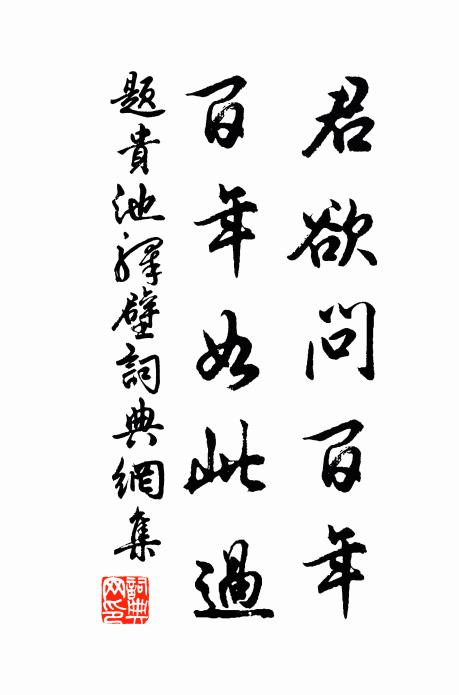 君欲問百年
百年如此過
題貴池釋壁詞典網集
詞典
网印